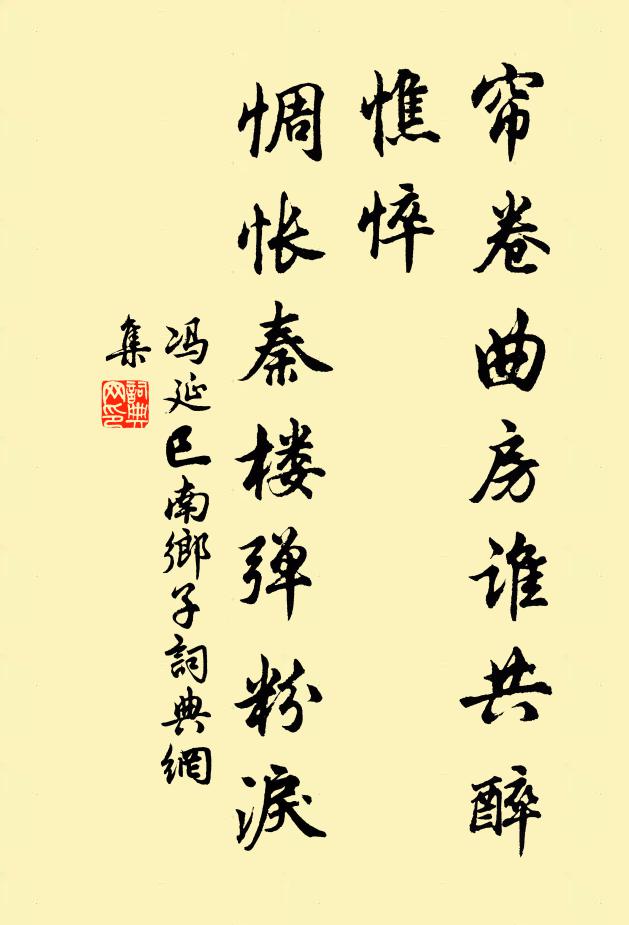 帘卷曲房谁共醉
憔悴
惆怅秦楼弹粉淚
冯延巳南鄉子詞典網
集
詞典网印